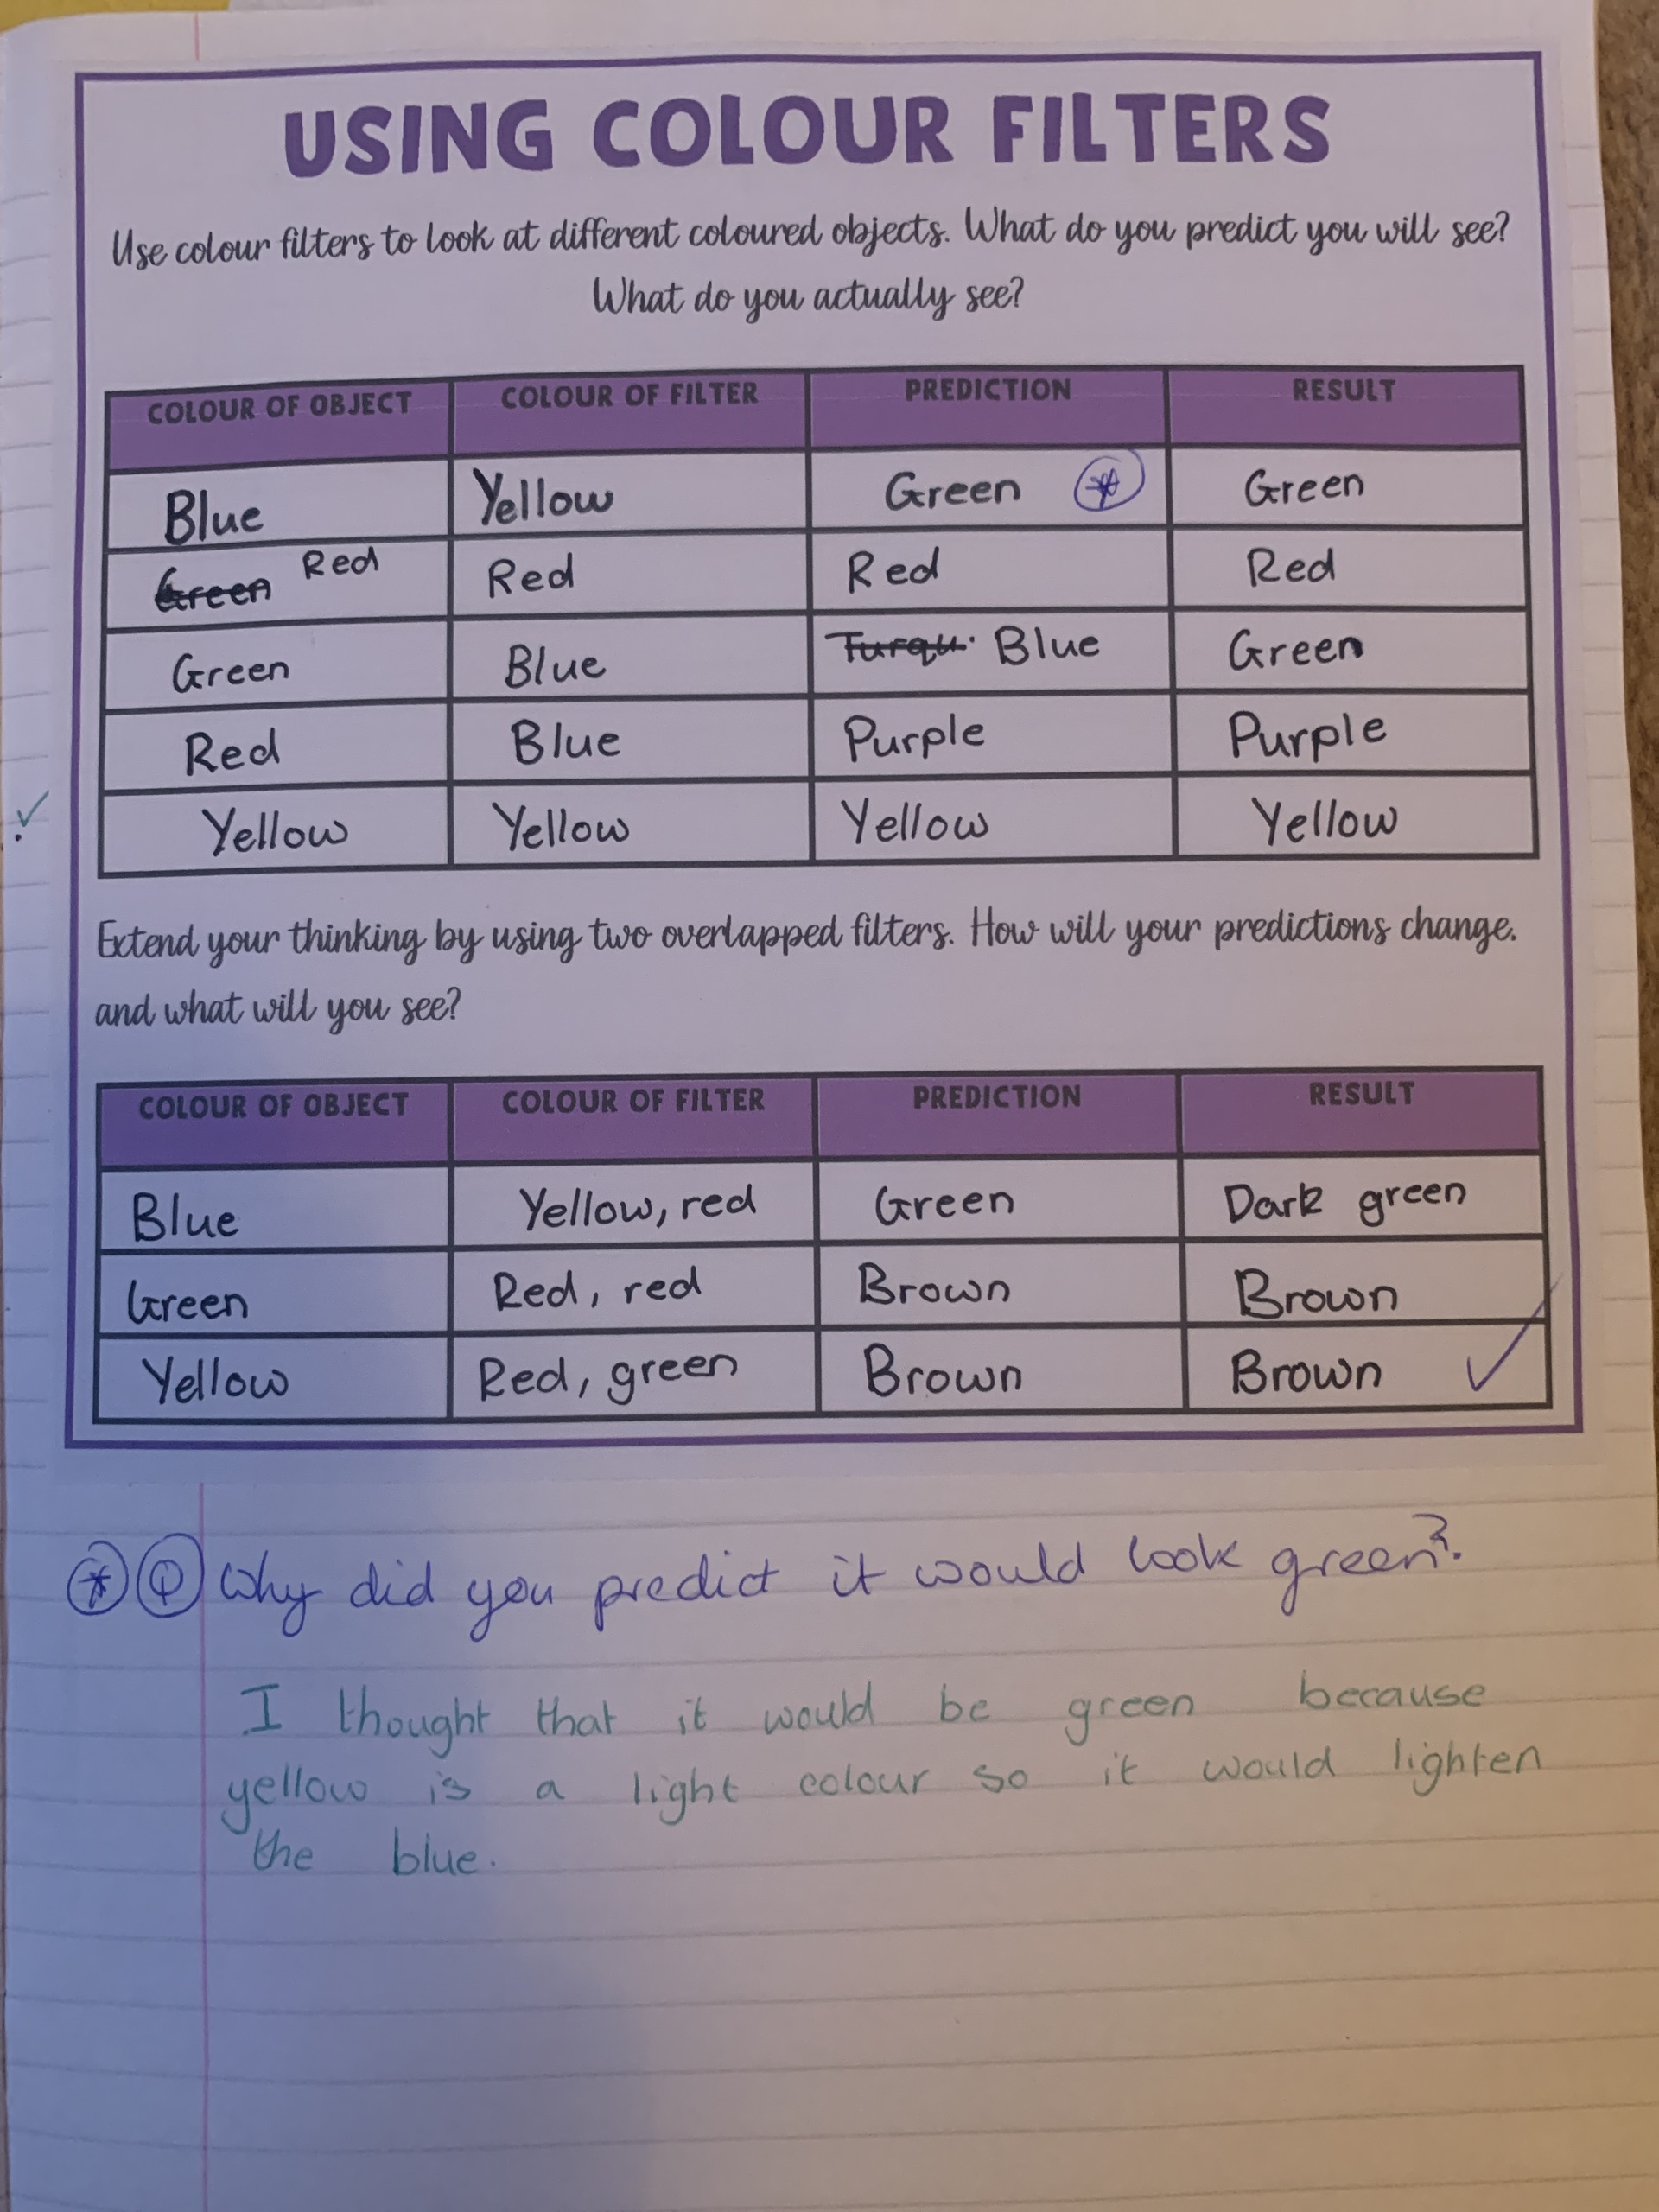 USING COLOUR FILTERS
Use colour filters to look at different coloured objects. What do you predict you will see?
What do you actually see?
COLOUR OF OBJECT COLOUR OF FILTER PREDICTION RESULT
Blue Yellow Green * Green
Green Red Red Red Red
Green Blue Turqu. Blue Green
Red Blue Purple Purple
Yellow Yellow Yellow Yellow
Extend your thinking by using two overlapped filters. How will your predictions change.
and what will you see?
COLOUR OF OBJECT COLOUR OF FILTER PREDICTION RESULT
Blue Yellow, red Green Dark green
Green Red, red Brown Brown
Yellow Red, green Brown Brown
* Q Why did you predict it would look green?
I thought that it would be green because
yellow is a light colour so it would lighten
the blue.